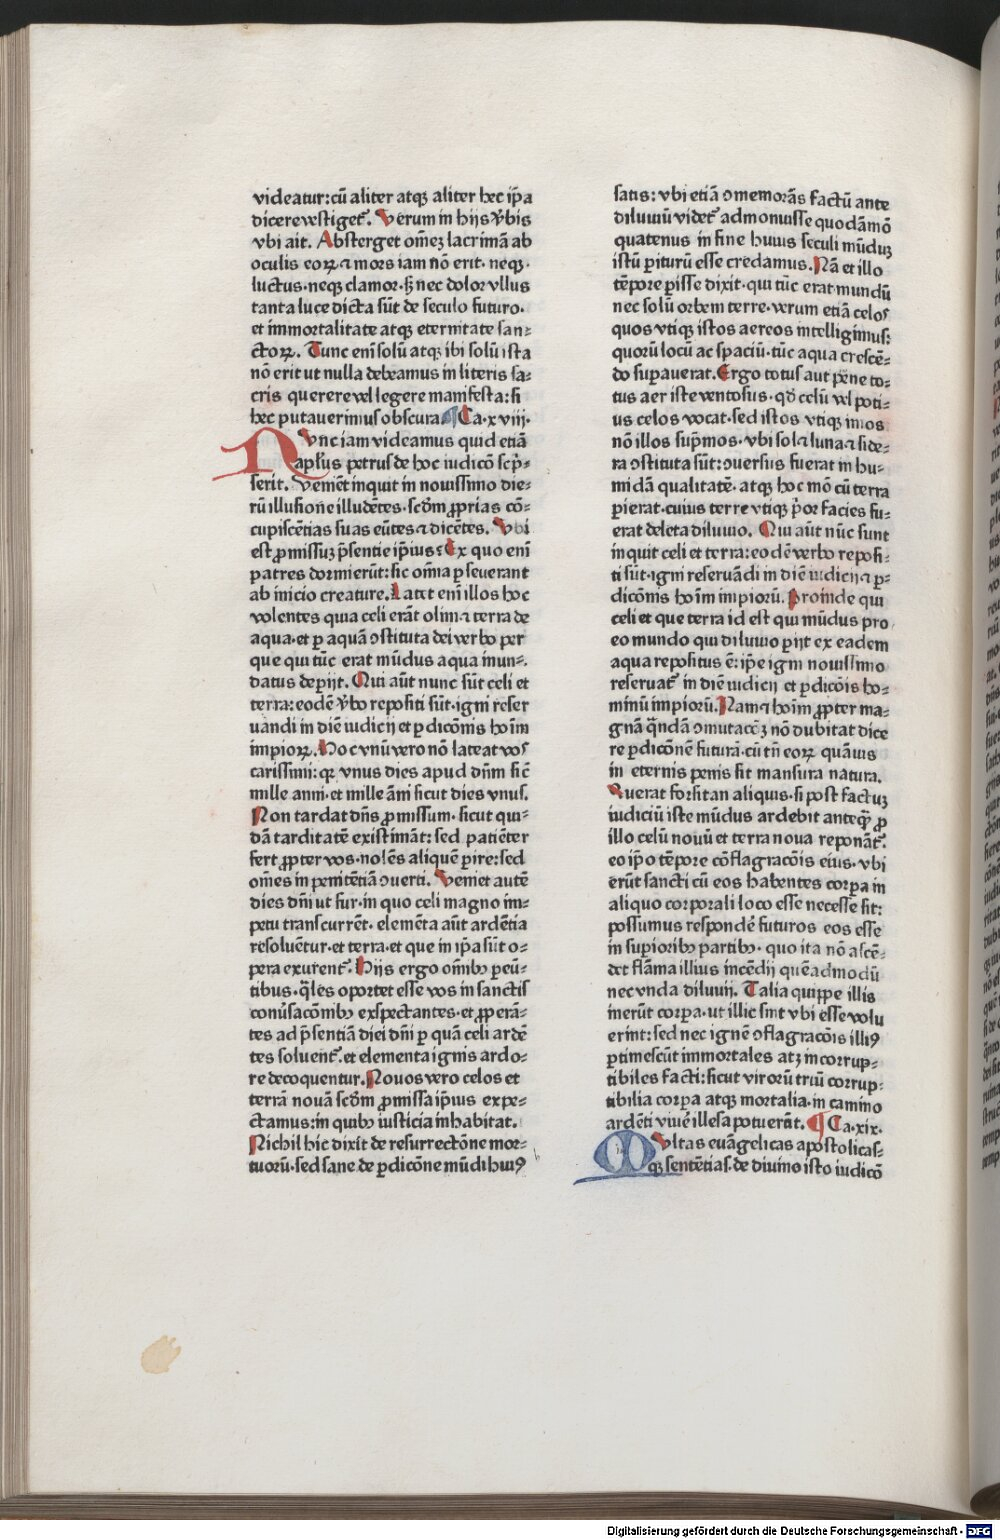 videatur:cū aliter atqꝫ aliter hec ip̄a
dicere vestiget᷒. Verum in hijs v̄bis
vbi ait. Absterget om̄eꝫ lacrimā ab
oculis eoꝝ ⁊ mors iam nō erit. neqꝫ.
luctus.neqꝫ clamor.sꝫ nec dolor vllus
tanta luce dicta sūt de seculo futuro.
et immortalitate atqꝫ eternitate san⸗
ctoꝝ. Tunc enī solū atqꝫ ibi solū ista
nō erit ut nulla debeamus in literis sa⸗
cris querere vel legere manifesta:si
hec putauerimus obscura ¶ Ca.xviij.
Nvnc iam videamus quid etiā
apl̄us petrus de hoc iudicō scp̄⸗
serit. Veniēt inquit in nouissimo die⸗
rū illusione illudētes. scd̄m ꝓprias cō⸗
cupiscētias suas eūtes ⁊ dicētes. Vbi
est ꝓmissuꝫ p̄sentie ip̄ius? Ex quo enī
patres dormierūt:sic om̄ia ꝑseuerant
ab inicio creature. Latet enī illos hoc
volentes quia celi erāt olim ⁊ terra de
aqua.et ꝑ aquā ꝯstituta dei verbo per
que qui tūc erat mūdus aqua inun⸗.
datus deꝑijt. Qui aūt nunc sūt celi et
terra:eodē v̄bo repositi sūt.igni reser
uandi in diē iudicij et ꝑdicōnis hoīm
impioꝝ. Hoc vnū vero nō lateat vos
carissimi:qꝫ vnus dies apud dn̄m sic̄
mille anni.et mille āni sicut dies vnus.
Non tardat dn̄s ꝓmissum.sicut qui⸗
dā tarditatē existimāt:sed patiēter
fert ꝓpter vos.nolēs aliquē ꝑire:sed
om̄es in penitētiā ꝯuerti. Veniet autē
dies dn̄i ut fur.in quo celi magno im⸗
petu transcurrēt. elemēta aūt ardētia
resoluētur.et terra.et que in ip̄a sūt o⸗
pera exurent᷒. Hijs ergo om̄ibꝫ ꝑeū⸗
tibus.q̄les oportet esse vos in sanctis
conūsacōnibꝫ exspectantes.et ꝓperā⸗
tes ad p̄sentiā diei dn̄i ꝑ quā celi ardē
tes soluent᷒.et elementa ignis ardo⸗
re decoquentur. Nouos vero celos et
terrā nouā scd̄m ꝓmissa ip̄ius expe⸗
ctamus:in quibꝫ iusticia inhabitat.
Nichil hic dixit de resurrectōne mor⸗
tuorū.sed sane de ꝑdicōne mūdi huiꝰ
satis:vbi etiā ꝯmemorās factū ante
diluuiū videt᷒ admonuisse quodāmō
quatenus in fine huius seculi mūduꝫ
istū ꝑiturū esse credamus. Nā et illo
tēpore ꝑisse dixit.qui tūc erat mundū
nec solū orbem terre.verum etiā celos
quos vtiqꝫ istos aereos intelligimus:
quorū locū ac spaciū.tūc aqua crescē⸗
do suꝑauerat. Ergo totus aut pene to⸗
tus aer iste ventosus.qd̄ celū vel poti⸗
us celos vocat.sed istos vtiqꝫ imos
nō illos sup̄mos.vbi sol ⁊ luna ⁊ side⸗
ra ꝯstituta sūt:ꝯuersus fuerat in hu⸗
midā qualitatē.atqꝫ hoc mō cū terra
ꝑierat.cuius terre vtiqꝫ p̄or facies fu⸗
erat deleta diluuio. Qui aūt nūc sunt
inquit celi et terra:eodē verbo reposi⸗
ti sūt.igni reseruādi in diē iudicij ⁊ ꝑ⸗
dicōnis hoīm impiorū. Proinde qui
celi et que terra id est qui mūdus pro
eo mundo qui diluuio ꝑijt ex eadem
aqua repositus ē:ip̄e igni nouissimo
reseruat᷒ in diē iudicij et ꝑdicōis ho⸗
minū impiorū. Nam ⁊ hoīm ꝓpter ma⸗
gnā q̄ndā ꝯmutacōꝫ nō dubitat dice
re ꝑdicōnē futurā.cū tn̄ eoꝝ quāuis
in eternis penis sit mansura natura.
Querat forsitan aliquis.si post factuꝫ
iudiciū iste mūdus ardebit anteqꝫ̄ ꝓ
illo celū nouū et terra noua reponāt᷒.
eo ip̄o tēpore cōflagracōis eius.vbi
erūt sancti cū eos habentes corꝑa in
aliquo corporali loco esse necesse sit:
possumus respondē futuros eos esse
in suꝑioribꝫ partibꝫ. quo ita nō ascē⸗
det flāma illius incēdij quēadmodū
nec vnda diluuij. Talia quippe illis
inerūt corꝑa.ut illic sint vbi esse volu
erint:sed nec ignē ꝯflagracōis illiꝰ
ꝑtimescūt immortales atꝫ incorrup⸗
tibiles facti:sicut virorū triū corrup⸗
tibilia corꝑa atqꝫ mortalia.in camino
ardēti viuē illesa potuerāt. ¶ Ca.xix.
Mvltas euāgelicas apostolicas⸗
qꝫ sentētias.de diuino isto iudicō
Digitalisierung gefördert durch die Deutsche Forschungsgemeinschaft - DFG